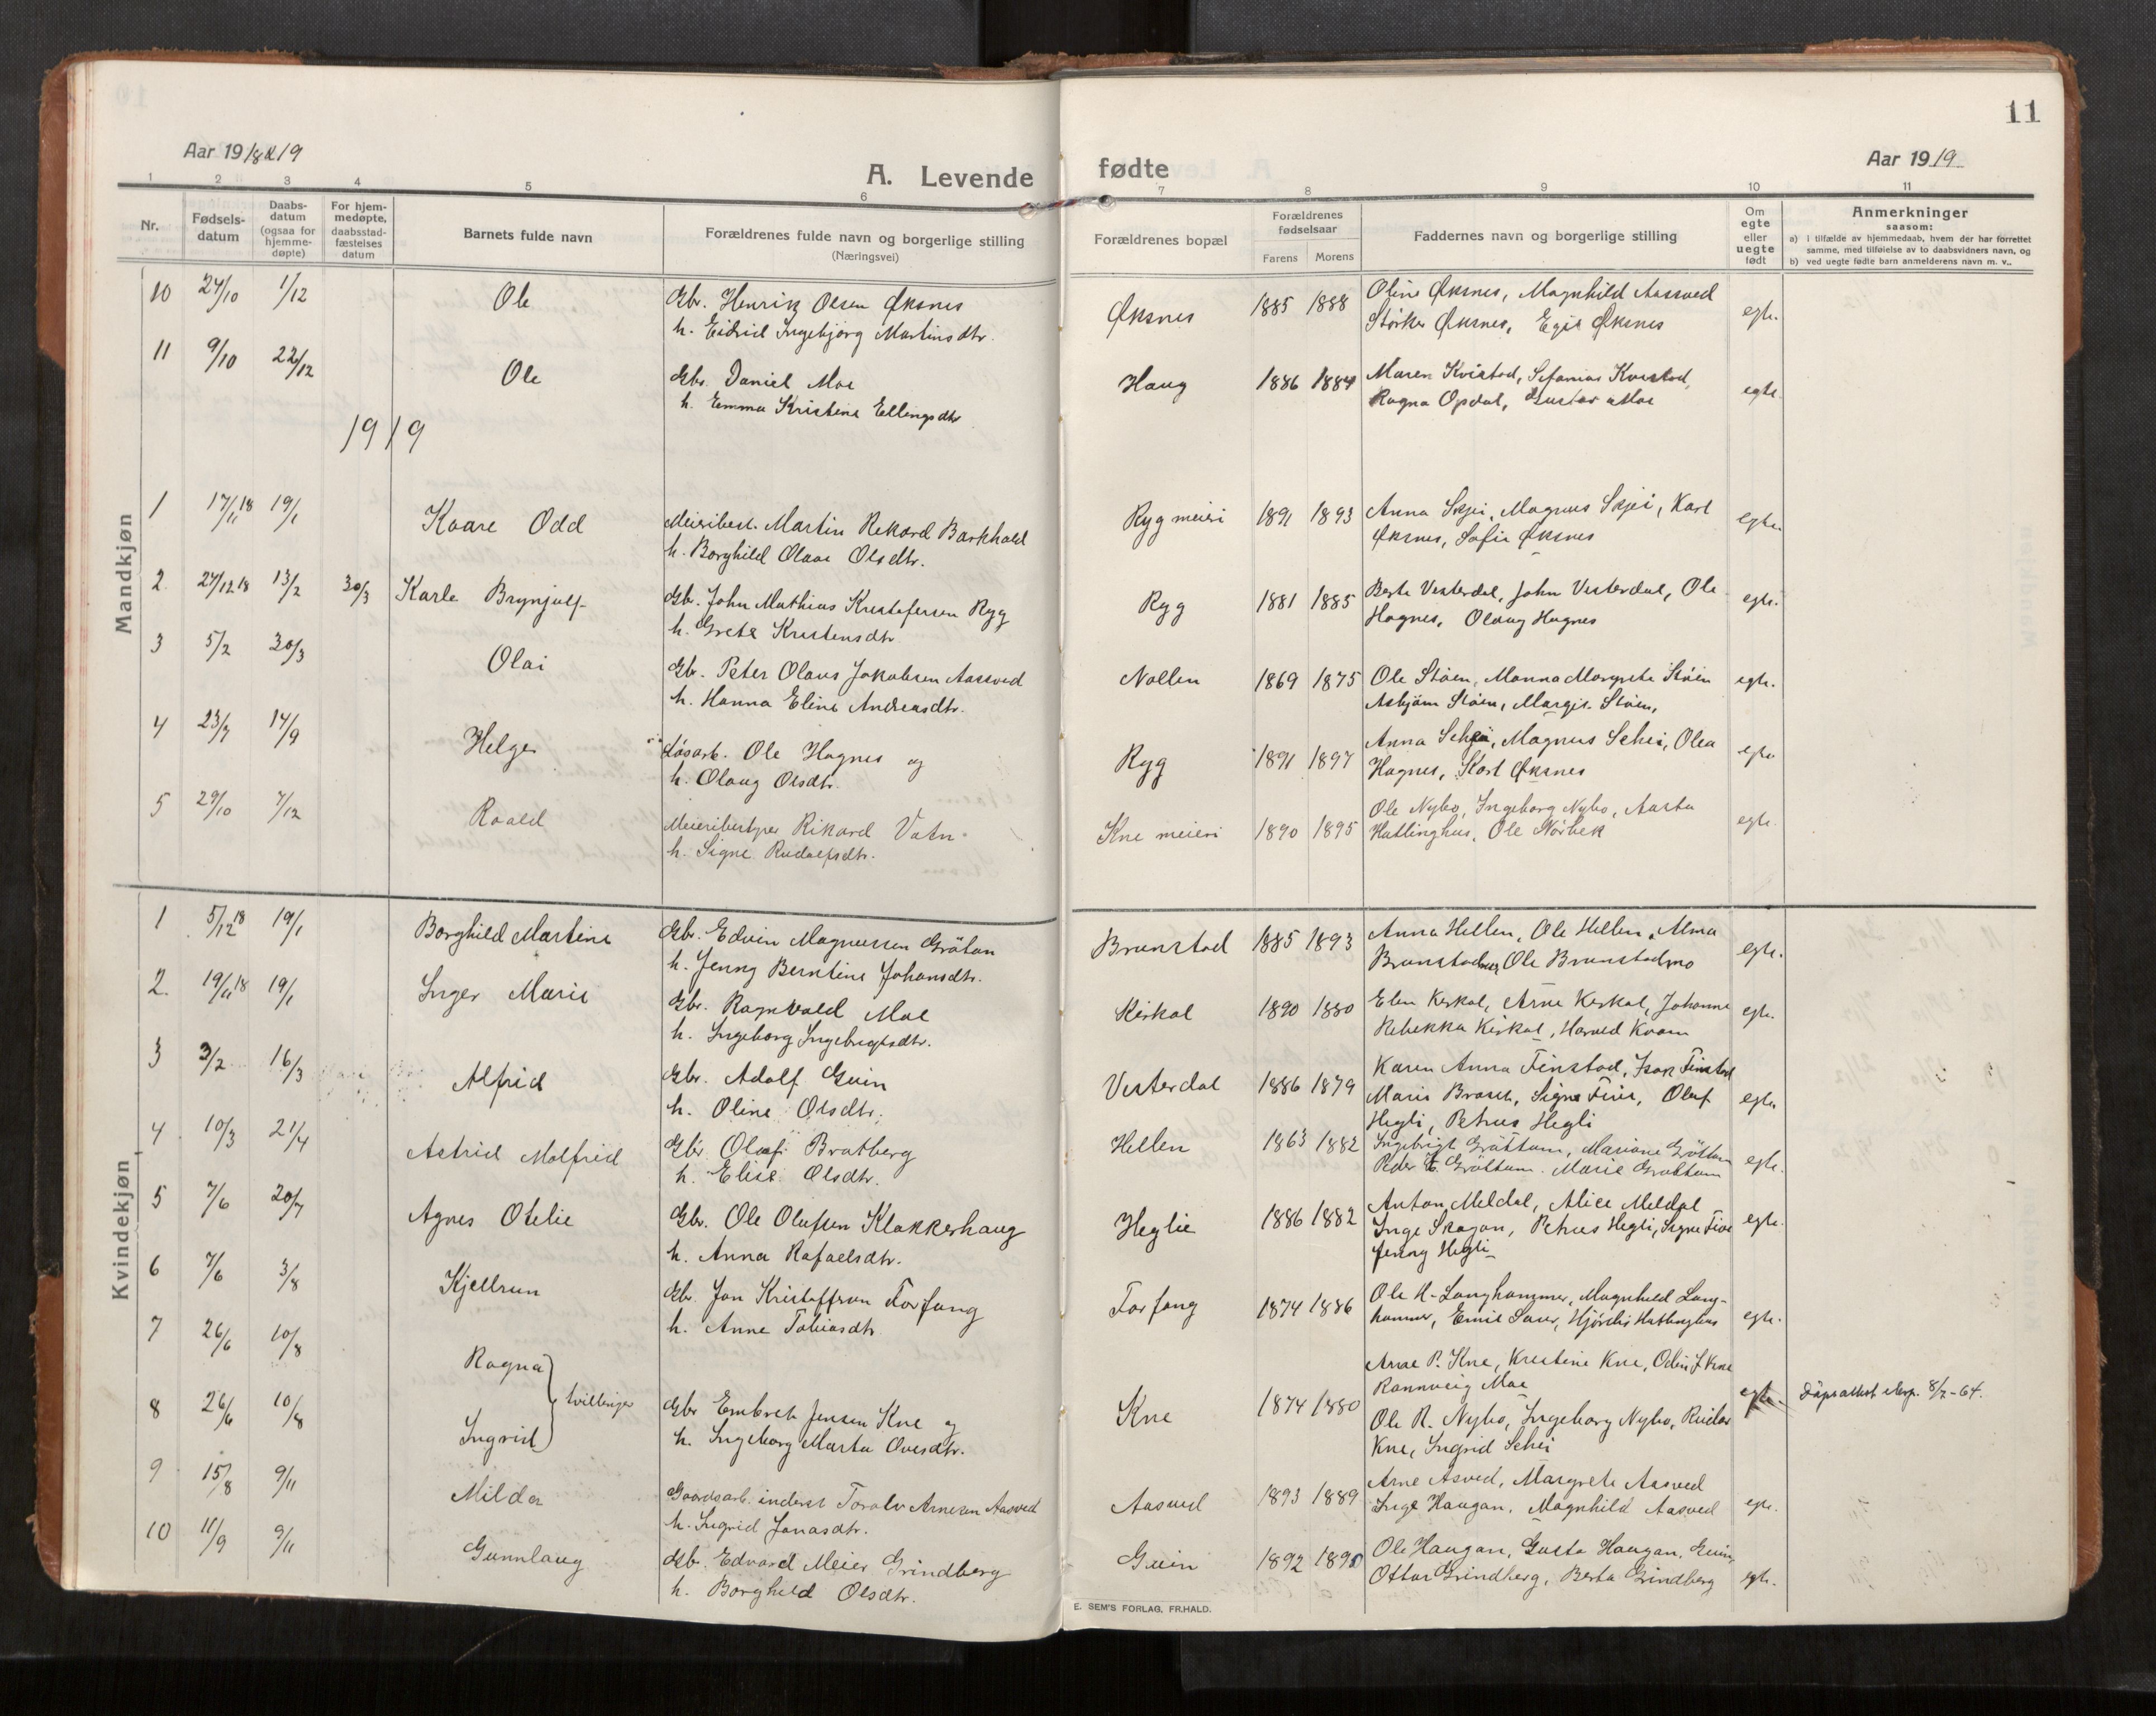 11
Aar 1918 & 19
A. Levende fødte
Aar 1919
1 2 3 4 5 6 7 8 9 10 11
Nr.
Fødsels-
datum
Daabs-
datum
(ogsaa for
hjemme-
døpte)
For hjem-
medøpte,
daabsstad-
fæstelses
datum
Barnets fulde navn
Forældrenes fulde navn og borgerlige stilling
(Næringsvei)
Forældrenes bopæl
Forældrenes
fødselsaar
Farens Morens
Faddernes navn og borgerlige stilling
Om
egte
eller
uegte
født
Anmerkninger
saasom:
a) i tilfælde av hjemmedaab, hvem der har forrettet
samme, med tilføielse av to daabsvidners navn, og
b) ved uegte fødte barn anmelderens navn m. v..
Mandkjøn
10 24/10 1/12 Ole Gbr. Henrik Olsen Øksnes Øksnes 1885 1888 Oline Øksnes, Magnhild Aasved egte.
h. Eidrid Ingebjørg Martinsdtr. Størker Øksnes, Egil Øksnes
11 9/10 22/12 Ole Gbr. Daniel Moe Haug 1886 1884 Maren Kvistad, Sefanias Kvistad, egte.
h. Emma Kristine Ellingsdtr Ragna Opdal, Gustav Moe
1919
1 17/11 18 19/1 Kaare Odd Meieribest. Martin Rekard Barkhald Ryg meieri 1891 1893 Anna Skjei, Magnus Skjei, Karl egte.
h. Borghild Olava Olsdtr. Øksnes, Sofie Øksnes
2 24/12 18 13/2 30/3 Karle Brynjulf Gb. John Mathias Kristofersen Ryg Ryg 1881 1885 Berte Vesterdal, John Vesterdal, Ole egte.
h. Grete Kristensdtr. Hagnes, Olaug Hagnes
3 5/2 30/3 Olai Gbr. Peter Olaus Jakobsen Aasved Nollen 1869 1875 Ole Støen, Manna Margrete Støen egte.
h. Hanna Eline Andreasdtr. Asbjørn Støen, Margit Støen,
4 23/7 14/9 Helge Løsarb. Ole Hagnes og Ryg 1891 1897 Anna Schei, Magnus Schei, Olea egte
h. Olaug Olsdtr. Hagnes, Karl Øksnes
5 29/10 7/12 Roald Meieribestyrer Rikard Vatn Kne meieri 1890 1895 Ole Nybo, Ingeborg Nybo, Aasta egte.
h. Signe Rudolfsdtr. Hatlinghus, Ole Nørbek
Kvindekjøn
1 5/12 18 19/1 Borghild Martine Gbr. Edvin Magnussen Gråtan Brunstad 1885 1893 Anna Hellen, Ole Hellen, Alma egte.
h. Jenny Berntine Johansdtr. Brunstadmo, Ole Brunstadmo
2. 19/11 18 19/1 Inger Marie Gbr. Ragnvald Moe Kirkol 1890 1880 Elen Kirkol, Arne Kirkol, Johanne egte.
h. Ingeborg Ingebrigtsdtr. Rebekka Kirkol, Harald Kvam
3 3/2 16/3 Alfrid Gbr. Adolf Guin Vesterdal 1886 1879 Karen Anna Finstad, Isak Finstad egte
h. Oline Olsdtr. Marie Brasch, Signe Five, Oluf
Hegli, Petrus Hegli
4 10/3 21/4 Astrid Malfrid Gbr. Olaf Bratberg Hellen 1863 1882 Ingebrigt Gråttum, Mariane Gråttum egte.
h. Elise Olsdtr. Peder E. Gråttum. Marie Gråttum
5 7/6 20/7 Agnes Otelie Gbr. Ole Olufsen Klakkerhaug Heglie 1886 1882 Anton Meldal, Alice Meldal egte.
h. Anna Rafaelsdtr. Inge Skogan, Petrus Hegli, Signe Five
Jenny Hegli
6 7/6 3/8 Kjellrun Gbr. Jon Kristoffersen Forfang Forfang 1874 1886 Ole H. Langhammer, Magnhild Lang- egte.
h. Anne Tobiasdtr. hammer, Emil Saur, Hjørdis Hatlinghus
7 26/6 10/8 Ragna Arne P. Kne, Kristine Kne, Odin J Kne
Rannveig Moe
tvillinger
8 26/6 10/8 Ingrid Gbr Embret Jensen Kne og Kne 1874 1880 Ole R. Nybo, Ingeborg Nybo, Reidar egte Dåpsattest 8/2-64.
h. Ingeborg Marta Ovesdtr. Kne, Ingrid Schei
9 15/8 9/11 Milda Gaardsarb. inderst Toralv Arnesen Aasved Aasved 1893 1889 Arne Asved, Margrete Aasved egte.
h. Ingrid Jonasdtr. Inge Haugan, Magnhild Aasved
10 11/9 9/11 Gunnlaug Gb. Edvard Meier Grindberg Guin 1892 1895 Ole Haugan, Gusta Haugan, Guin, egte.
h. Borghild Olsdtr. Ottar Grindberg, Berta Grindberg
E. SEM'S FORLAG, FR.HALD.